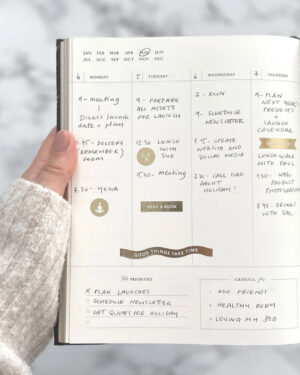 JAN FEB MAR APR MAY JUN
JUL AUG SEP OCT NOV DEC
4 MONDAY
9 - meeting
Discuss launch
date + plan
(REMEMBER)
FORM
7.30 - YOGA
5 TUESDAY
9 - PREPARE
ALL ASSETS
FOR LAUNCH
12.30 LUNCH
WITH
SUE
15.30 - meeting
READ A BOOK
6 WEDNESDAY
7 - RUN
9 - SCHEDULE
NEWSLETTER
UPDATE
WEBSITE AND
SOCIAL MEDIA
CALL DAD
ABOUT
HOLIDAY!
7 THURSDAY
9 - PLAN
NEXT YEAR
PRODUCTS
+
LAUNCH
CALENDAR
LUNCH WALK
WITH PAUL
NEW
PRODUCT
PHOTOGRAPHY
DRINKS
WITH
GOOD THINGS TAKE TIME
PRIORITIES
X PLAN LAUNCHES
SCHEDULE NEWSLETTER
GET QUOTES FOR HOLIDAY
GRATEFUL for
MY FRIENDS
HEALTHY BODY
LOVING MY JOB